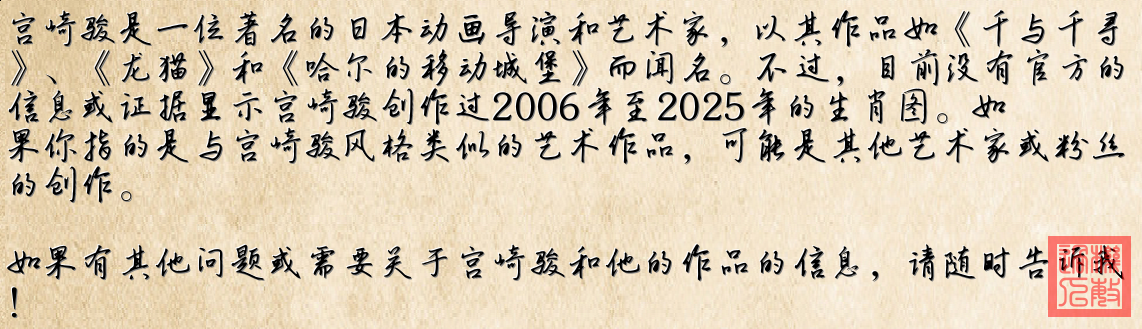 宫崎骏是一位著名的日本动画导演和艺术家，以其作品如《千与千寻
》、《龙猫》和《哈尔的移动城堡》而闻名。不过，目前没有官方的
信息或证据显示宫崎骏创作过2006年至2025年的生肖图。如
果你指的是与宫崎骏风格类似的艺术作品，可能是其他艺术家或粉丝
的创作。
如果有其他问题或需要关于宫崎骏和他的作品的信息，请随时告诉我
！